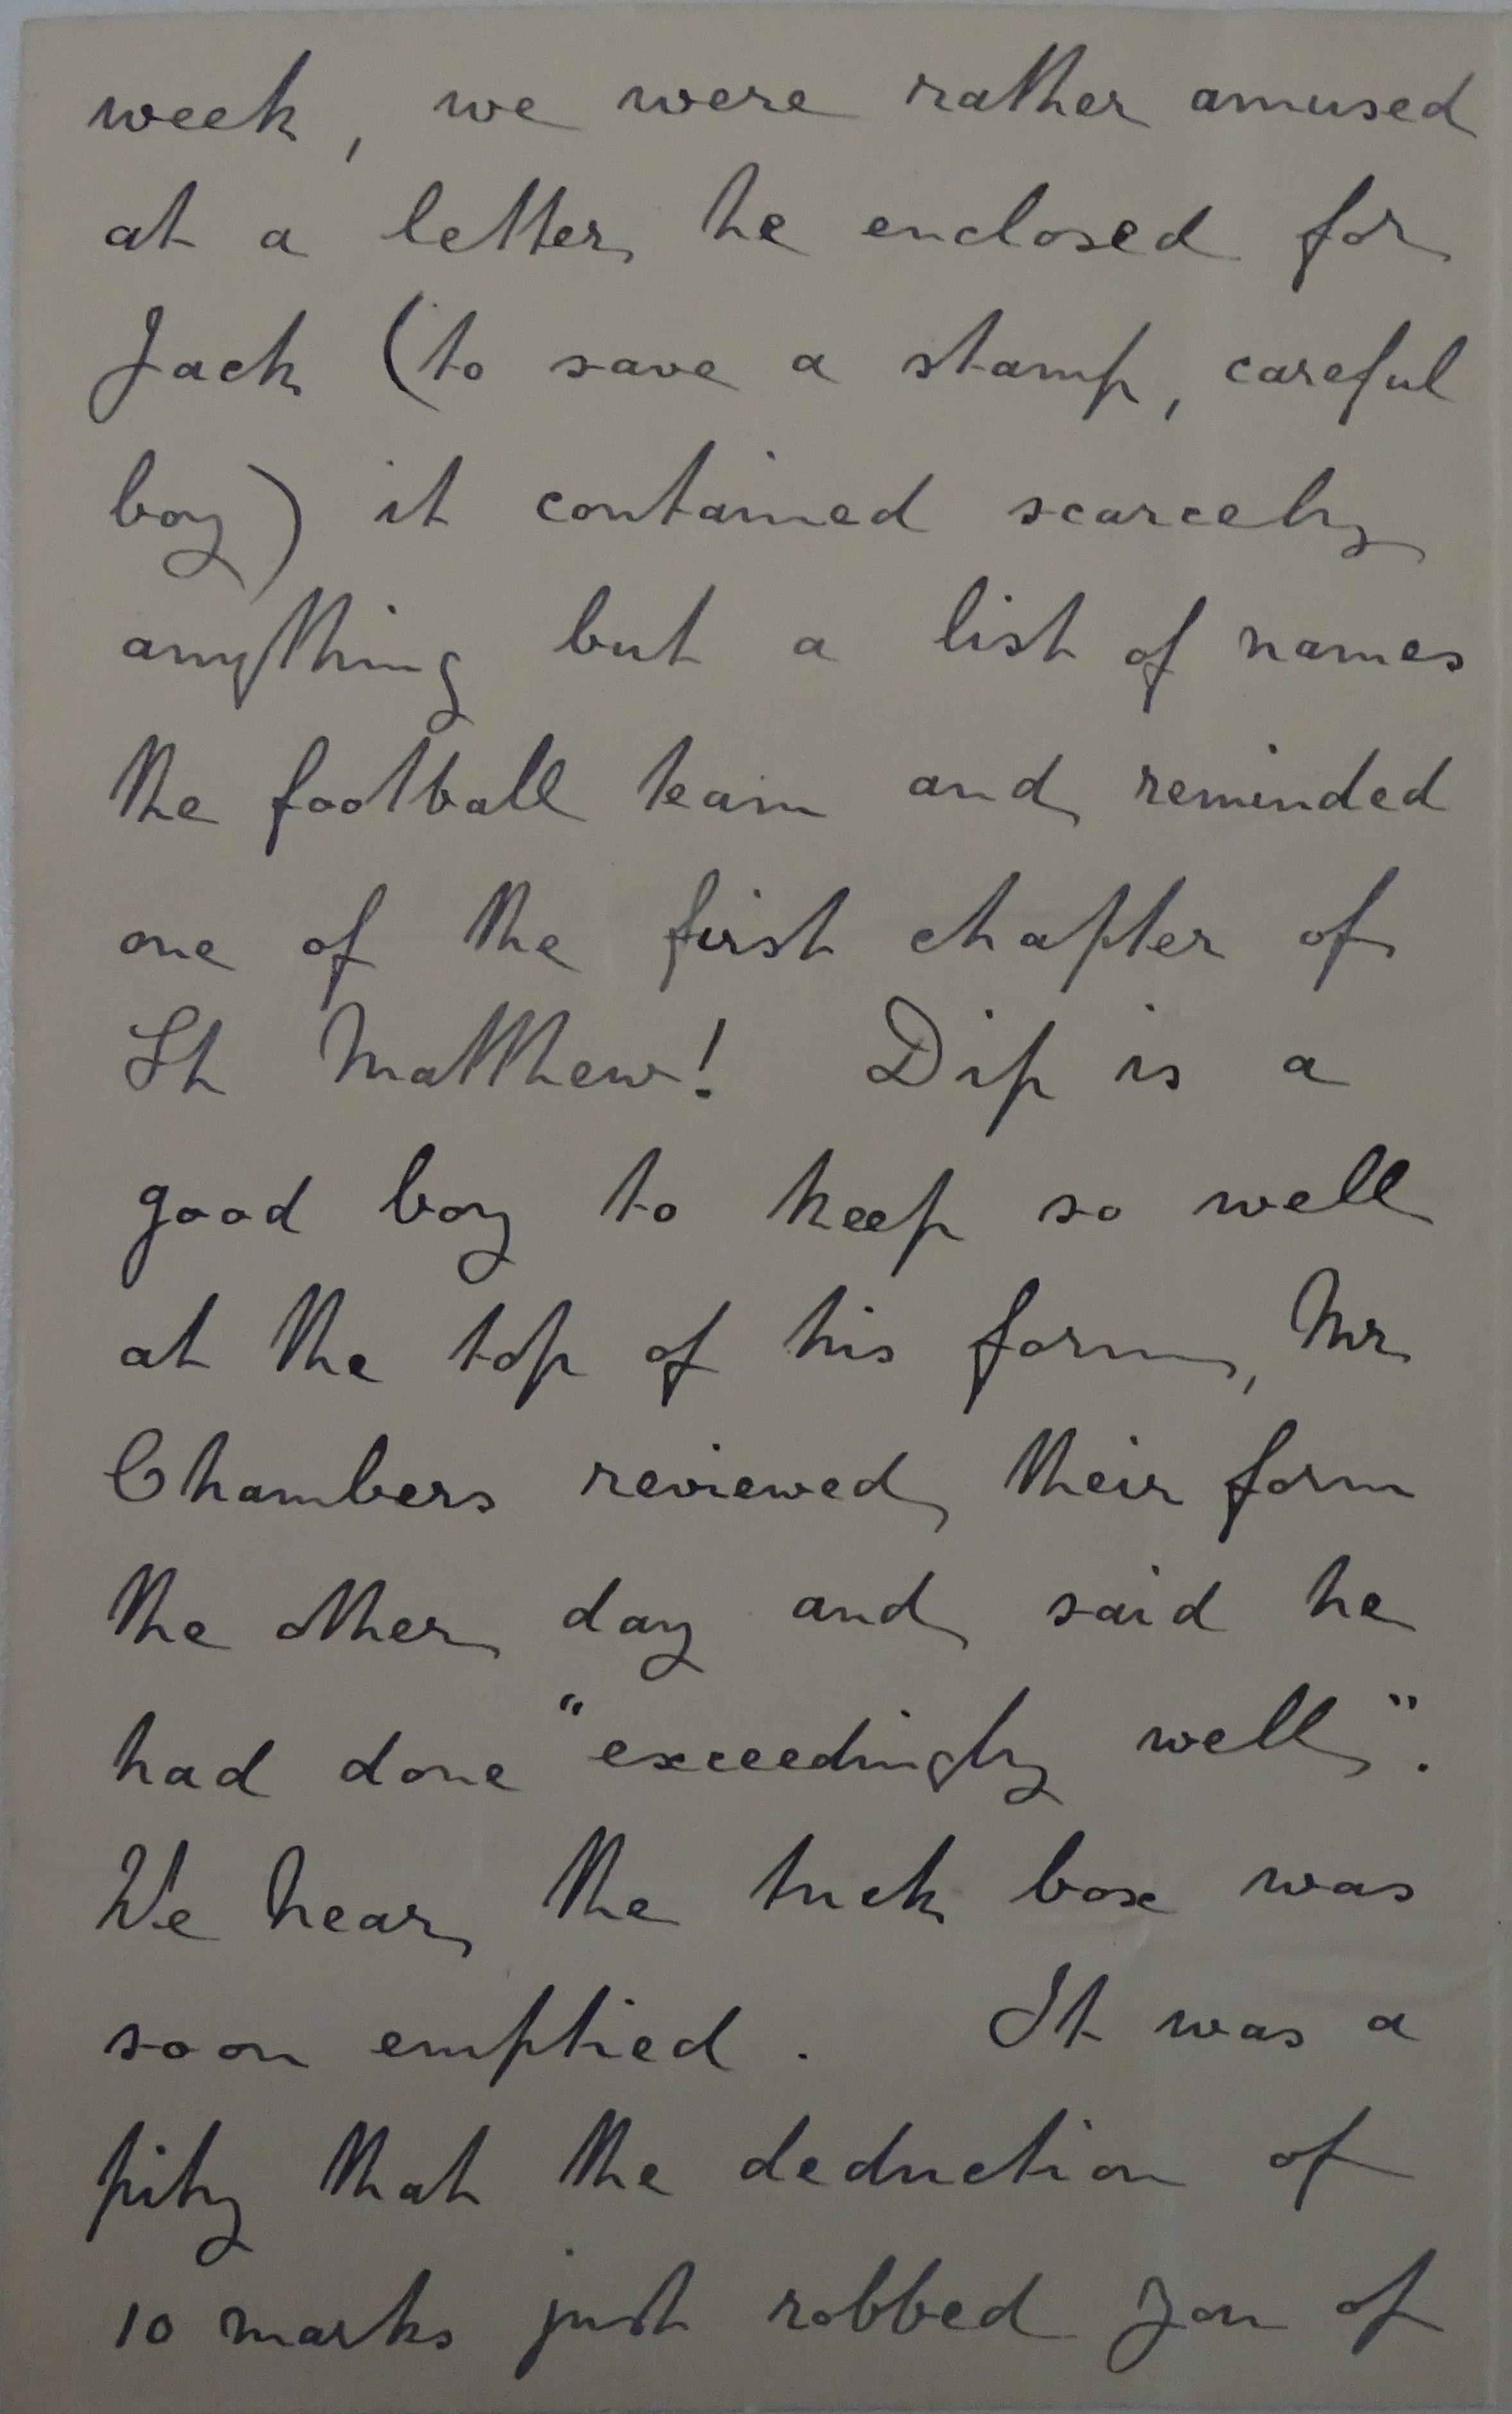 week, we were rather amused
at a letter he enclosed for
Jack (to save a stamp, careful
boy) it contained scarcely
anything but a list of names
the football team and reminded
one of the first chapter of
St Matthew! Dip is a
good boy to keep so well
at the top of his form, Mr
Chambers reviewed their form
the other day and said he
had done "exceedingly well".
We hear the tuck box was
soon emptied. It was a
pity that the deduction of
10 marks just robbed you of